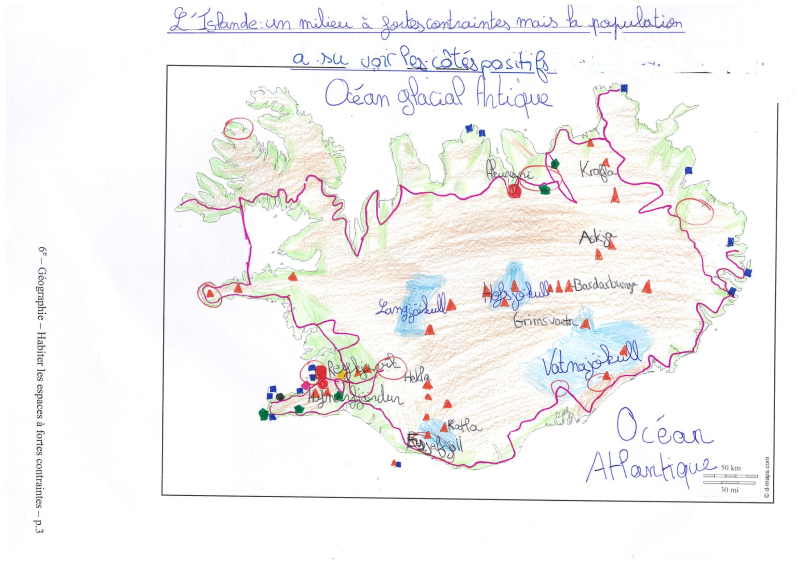 L'Islande: un milieu à fortes contraintes mais la population
a su voir les côtés positifs
Océan glacial Antique
Krafla
Askja
Langjökull
Hofsjökull
Bardarbunga
Grimsvaetn
Vatnajökull
Reykjavik
Hekla
Katla
Océan
Atlantique
50 km
30 mi
© d-maps.com
6e – Géographie – Habiter les espaces à fortes contraintes – p.3